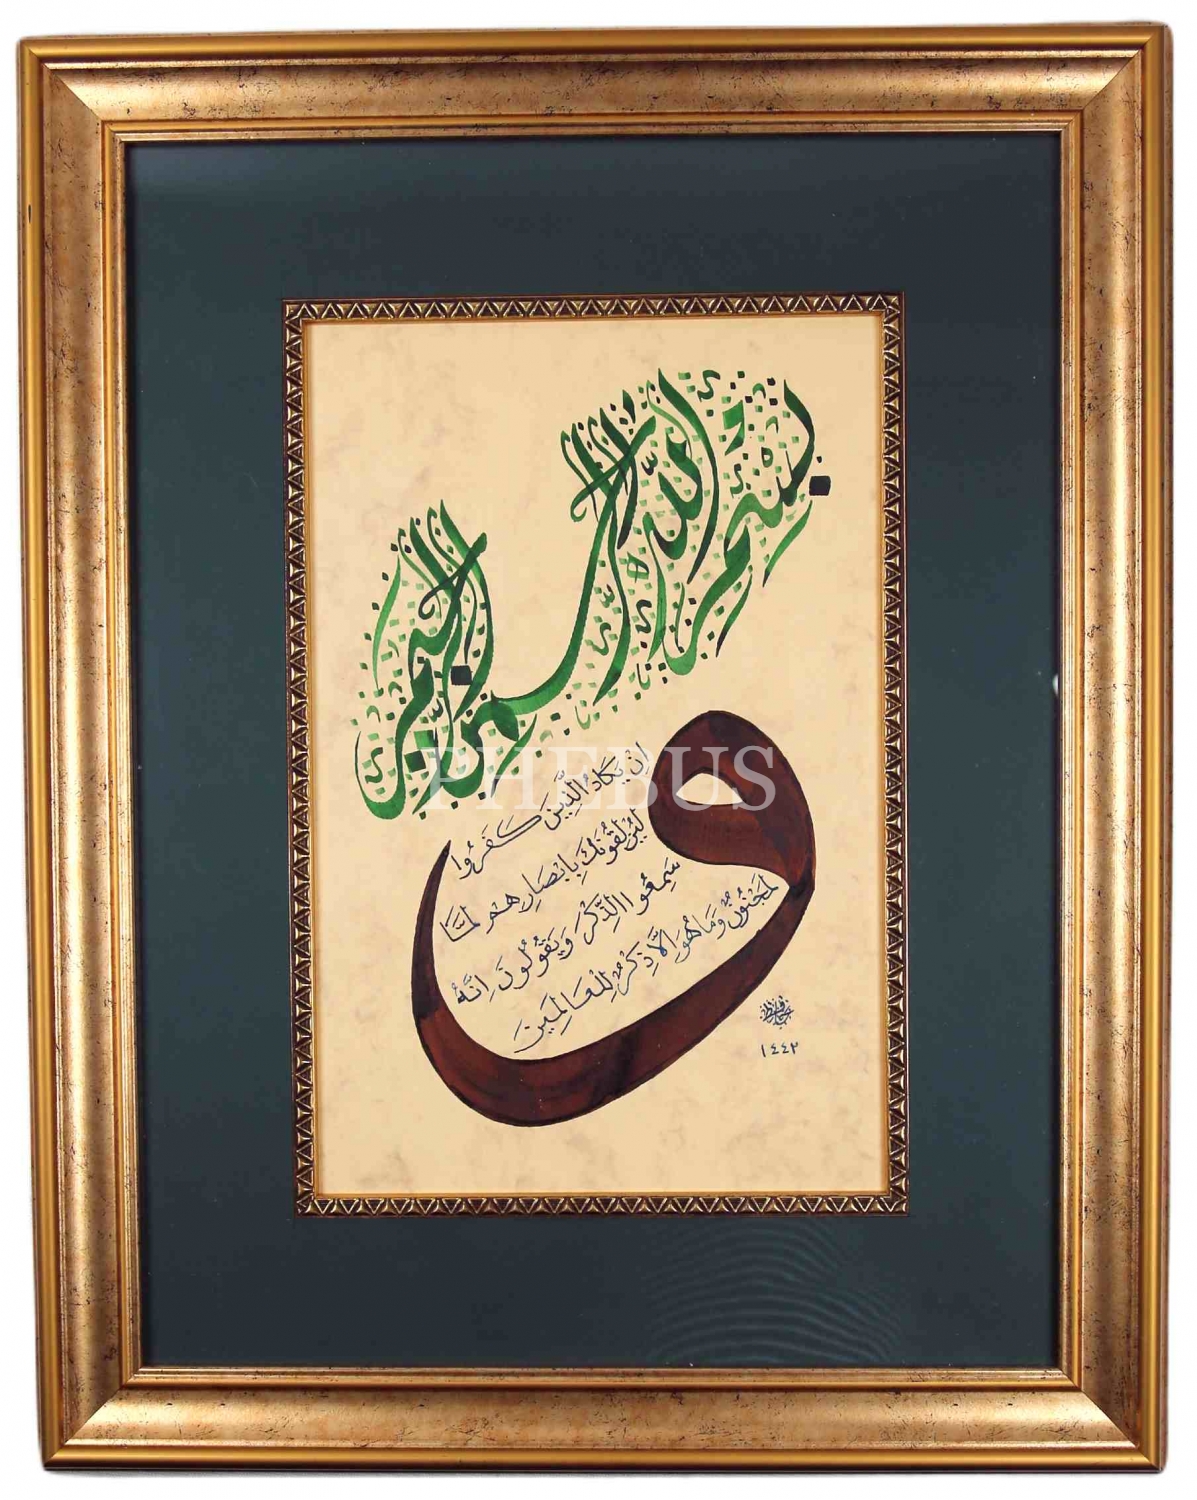 بسم الله الرحمن الرحيم
و
إن يَكَادُ الَّذِينَ كَفَرُوا
لَيُزْلِقُونَكَ بِأَبْصَارِهِمْ لَمَّا
سَمِعُوا الذِّكْرَ وَيَقُولُونَ إِنَّهُ
لَمَجْنُونٌ وَمَا هُوَ إِلَّا ذِكْرٌ لِلْعَالَمِينَ
١٤٤٢
PHEBUS